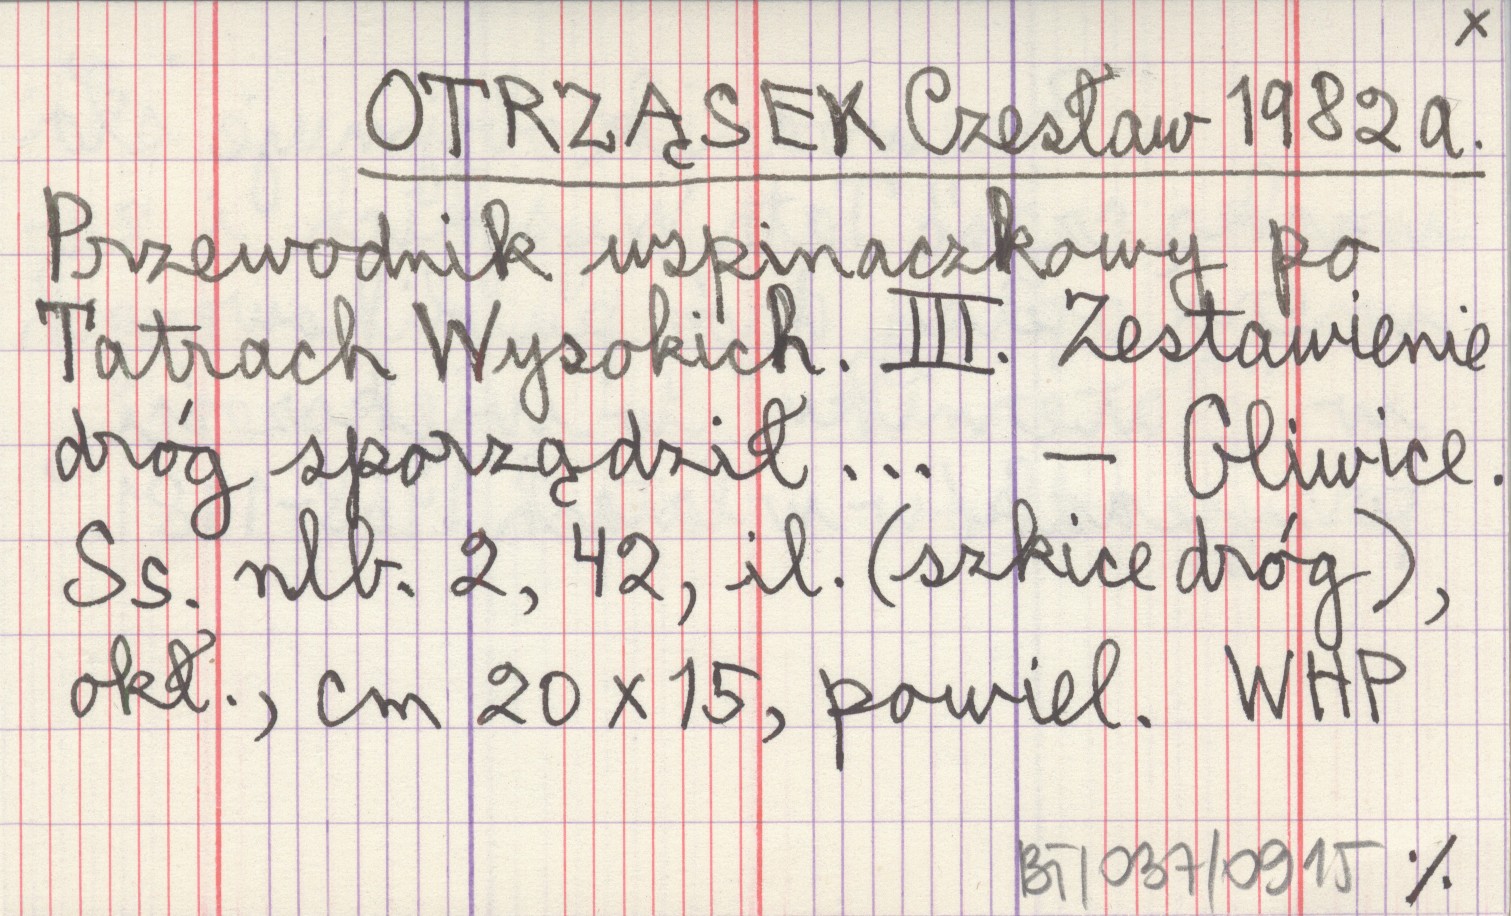 x
OTRZĄSEK Czesław 1982 a.
Przewodnik wspinaczkowy po
Tatrach Wysokich. III. Zestawienie
dróg sporządził ... — Gliwice.
Ss. nlb. 2, 42, il. (szkice dróg),
okł., cm 20 x 15, powiel. WHP
BT/037/0915 ·/.